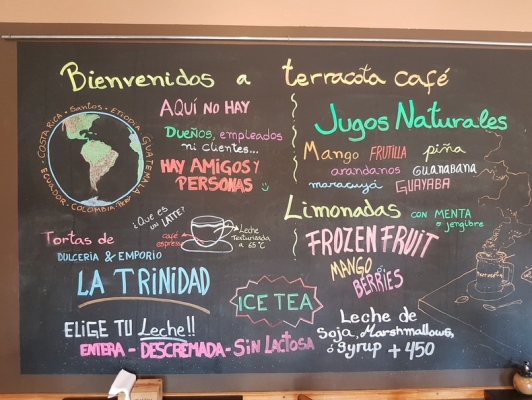 Bienvenidos a terracota café
COSTA RICA • Santos • ETIOPIA • GUATEMALA • Peru • COLOMBIA • ECUADOR •
AQUÍ NO HAY
DUEÑOS, empleados
ni clientes...
HAY AMIGOS Y
PERSONAS
¿QUE ES
UN LATTE?
café
espresso
Leche
Texturizada
a 65°C
Tortas de
DULCERÍA & EMPORIO
LA TRINIDAD
ELIGE TU Leche!!
ENTERA - DESCREMADA - SIN LACTOSA
ICE TEA
Jugos Naturales
Mango FRUTILLA piña
arandanos GUANABANA
maracuyá GUAYABA
LIMONADAS CON MENTA
o jengibre
FROZEN FRUIT
MANGO
BERRIES
Leche de
Soja, Marshmallows,
ó Syrup + 450
terracota